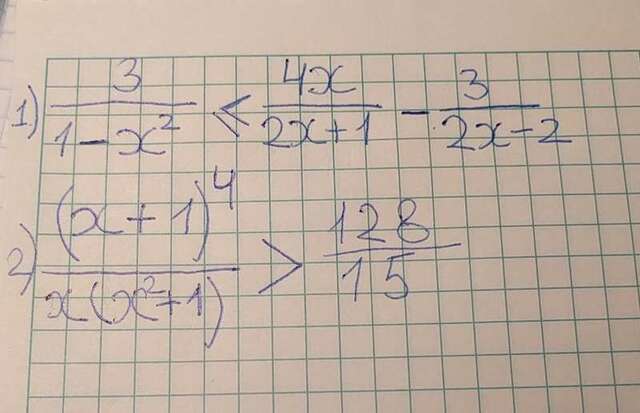 1) 3/(1-x²) < 4x/(2x+1) - 3/(2x-2)
2) (x+1)⁴/(x(x²+1)) > 128/15